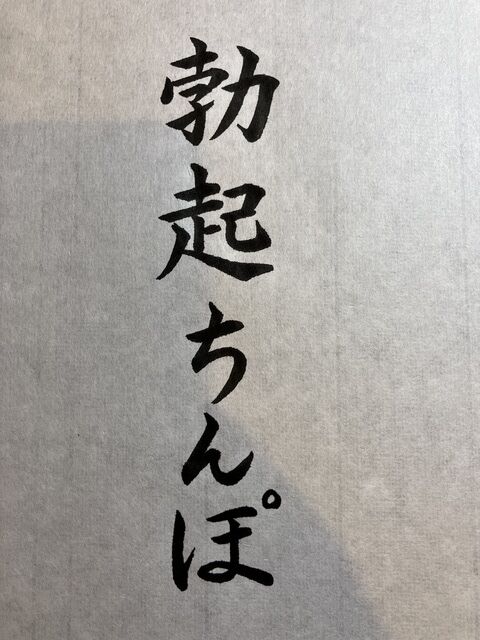 勃起ちんぽ